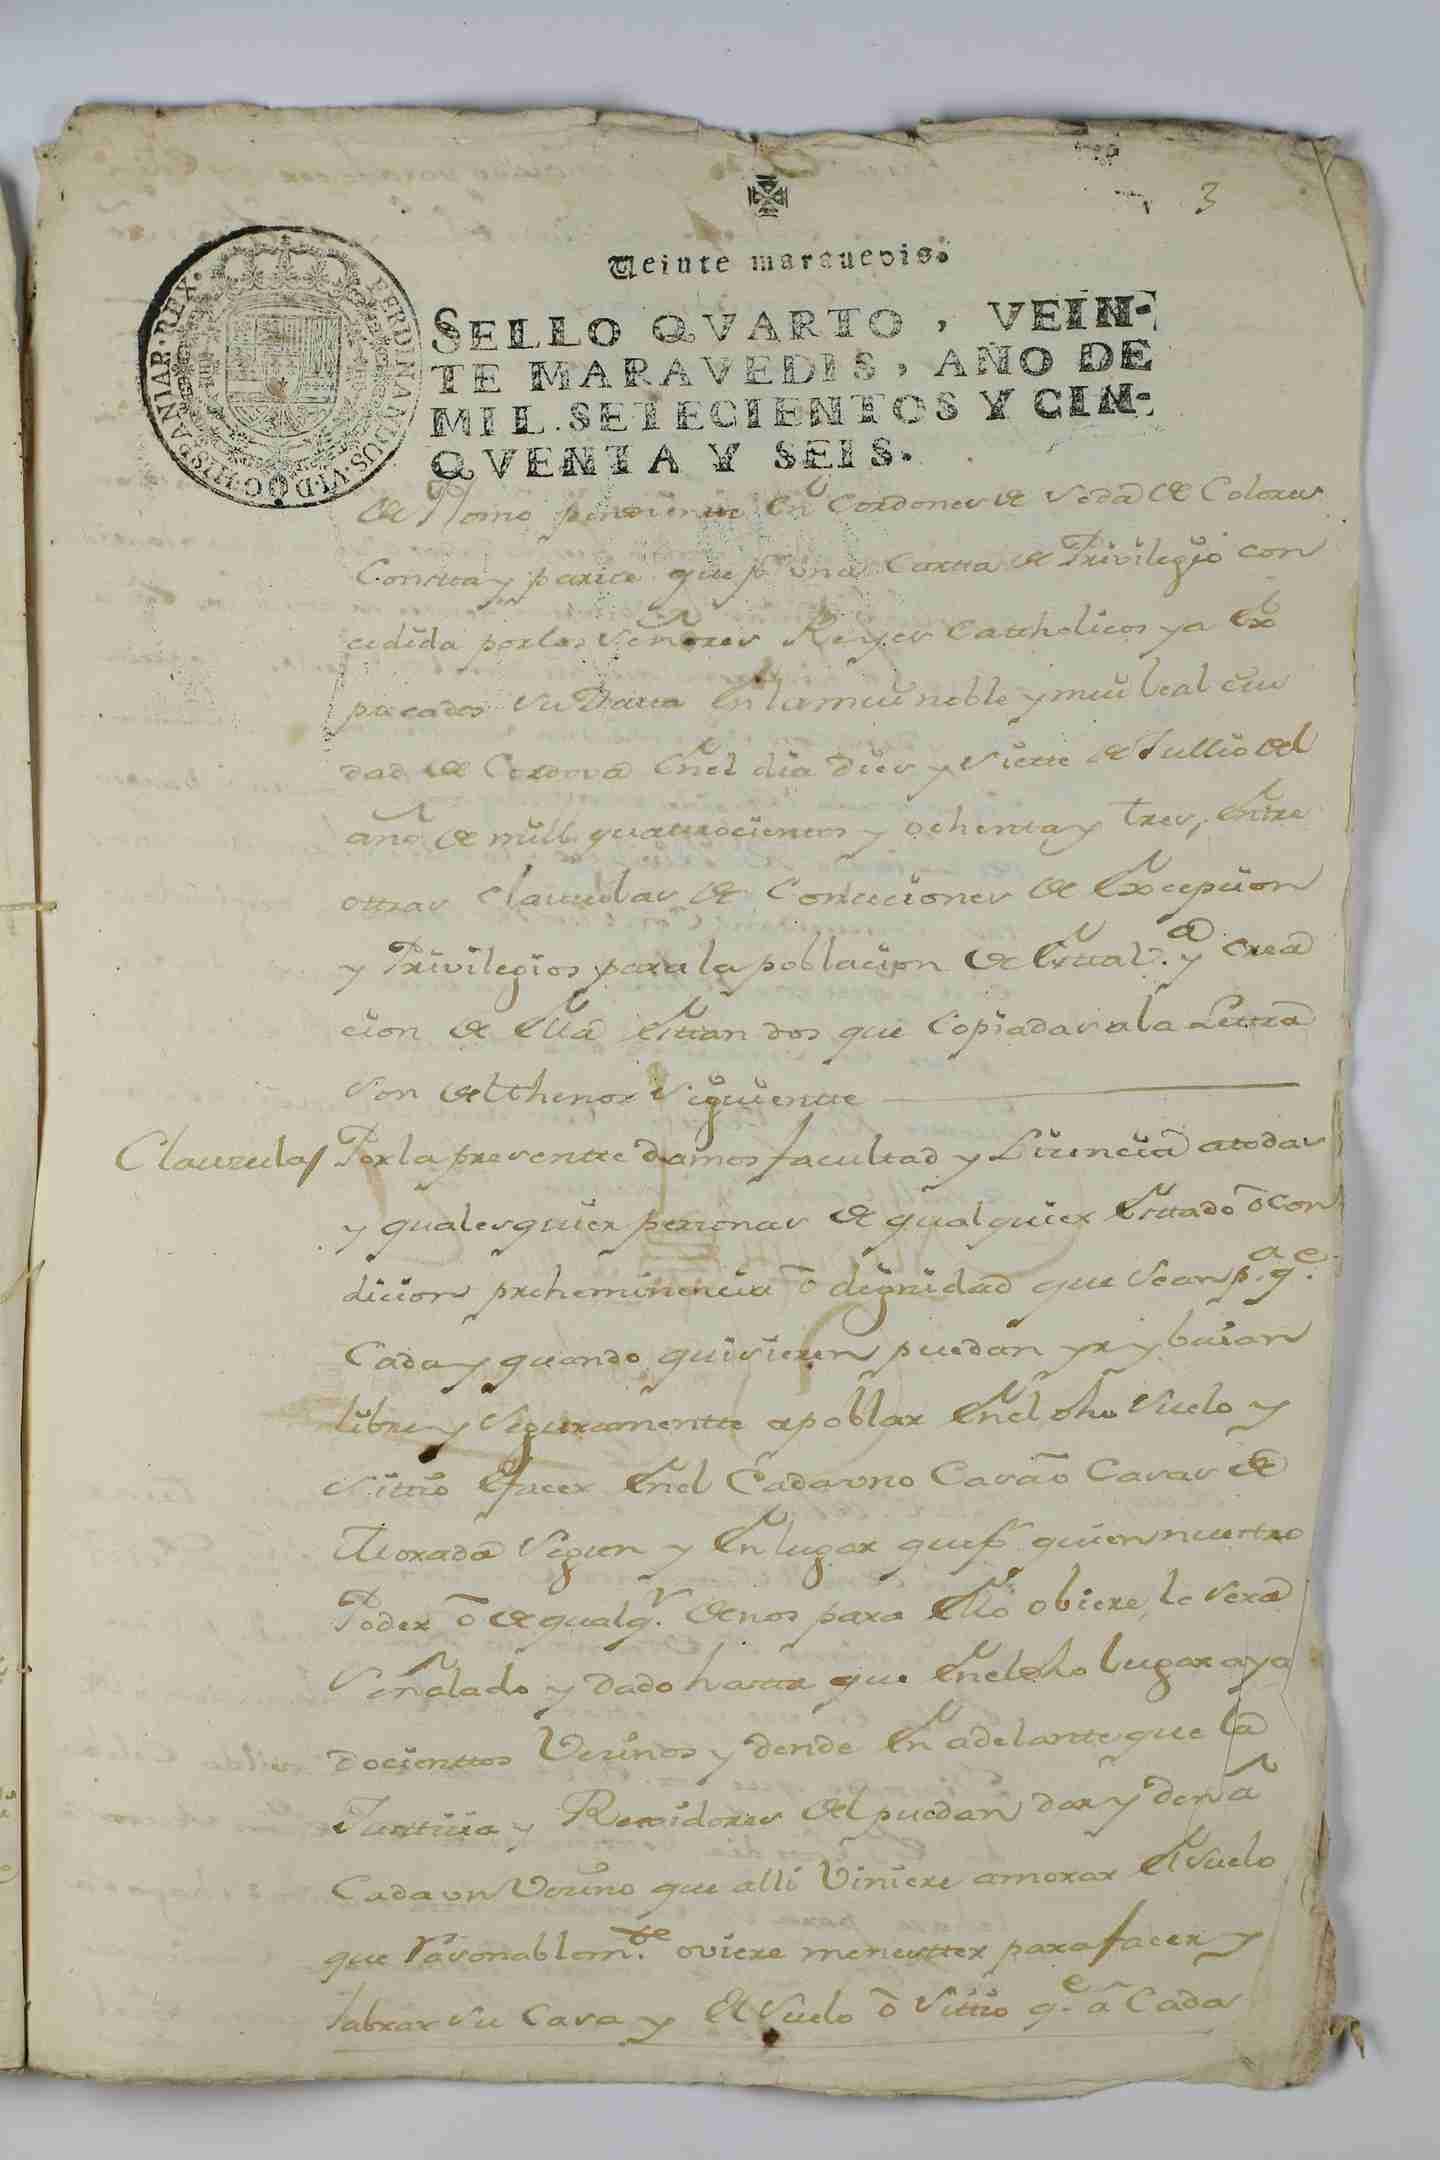 3
Veinte marauedis.
SELLO QVARTO, VEIN-
TE MARAVEDIS, AÑO DE
MIL SETECIENTOS Y CIN-
QVENTA Y SEIS.
FERDINANDUS·VI·D·G·HISPANIAR·REX·
de Plomo pendiente en Cordones de seda de Colores
Constta y parice que pr una Cartta de Privilegio con
cedida por los señores Reyes Catthólicos ya ex
presados su Datta en la mui noble y mui leal ciu
dad de Cordova en el dia diez y siette de Jullio del
año de mill quattrocienttos y ochenta y tres, entre
ottras clausulas de Concesiones de Excepcion
y Privilegios para la poblacion de esta V.ª y crea
cion de ella esttan dos que Copiadas a la Lettra
son del thenor siguientte
Clausulas Por la presentte damos facultad y Licencia a todas
y qualesquier personas de qualquier esttado ò con
dicion preheminencia ò dignidad que sean p.ª q.e
Cada y quando quisieren puedan yr y baian
libre y seguramentte a poblar en el dho suelo y
sittio e facer en el Cada uno Casa ò Casas de
Morada segun y en lugar que pr quien nuestro
Poder ò de qualq.r de nos para ello obiere, le sera
señalado y dado hasta que en el dho lugar aya
docienttos Vecinos y dende en adelante que la
Justticia y Rexidores del puedan dar y den â
Cada un Vecino que alli Viniere a morar el suelo
que rasonablem.te oviere menestter para facer y
labrar su Casa y el suelo ò sittio q.e a Cada